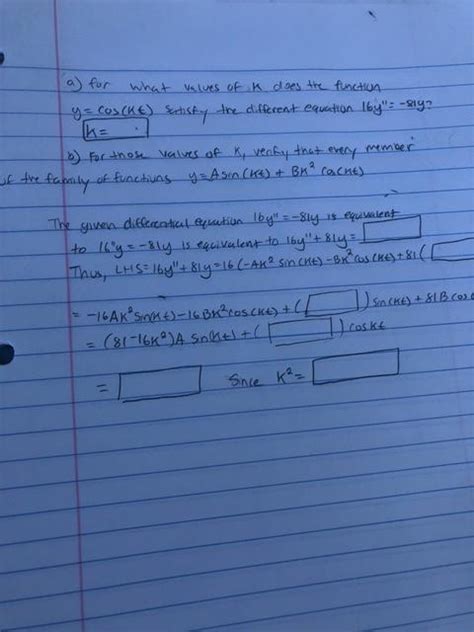 a) for what values of K does the function
y = cos(kt) satisfy the different equation 16y" = -81y?
k =
b) For those values of K, verify that every member
of the family of functions y = A sin(kt) + BK² cos(kt)
The given differential equation 16y" = -81y is equivalent
to 16"y = -81y is equivalent to 16y" + 81y =
Thus, LHS = 16y" + 81y = 16(-AK² sin(kt) - BK² cos(kt) + 81(
= -16AK² sin(kt) - 16BK² cos(kt) + ( ) sin(kt) + 81B cos
= (81-16K²)A sin(kt) + ( ) cos kt
= Since K² =